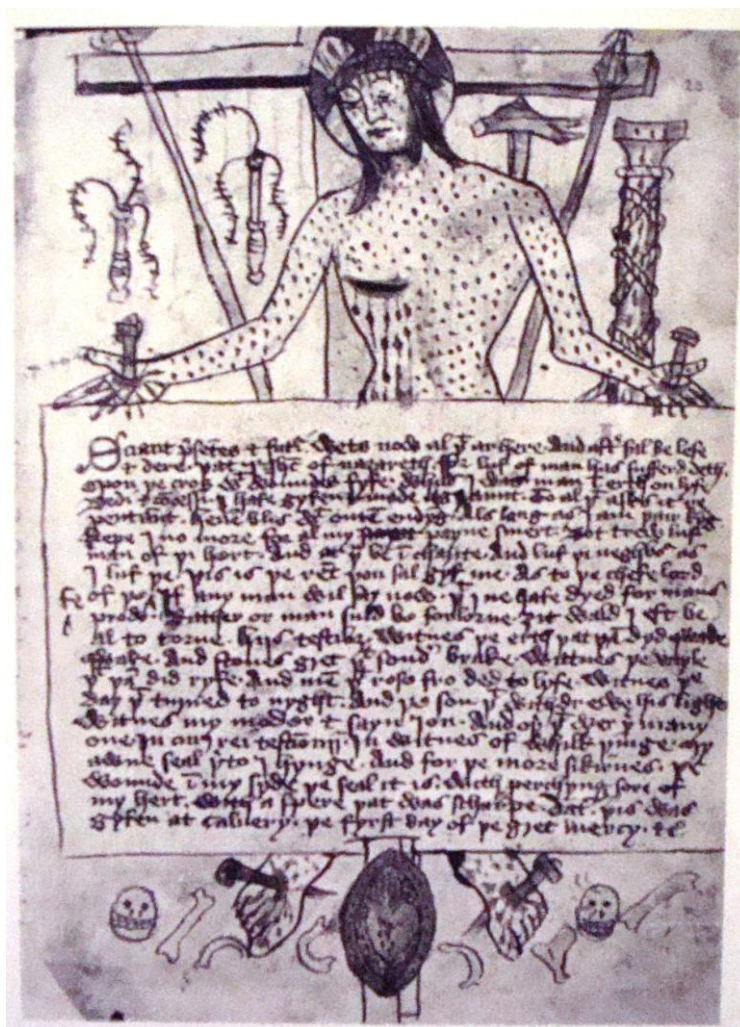 Sciant p̄sētes & futˀi. Wets now al þͭ ar here. And aftˀ sal be lefe
& dere. þat I ihc̄ of nazareth. For luf of man has sufferd deth.
opon þe cros wͭ woundes fyfe. Whils I was man in erth on lyfe
I hafe gyfen & made a graunt. To al þͭ askes it re
pentant. Heuē blis wͭ outē endyg. Als lang as I am þair kyg
Kepe I no more for al my payne smert. Bot trew luf
man of þi hert. And at þͧ be ī charite. And luf þi neghbur as
I luf þe. þis is þe rēt þou sal gyf me. As to þe chefe lord
fe of If any man wil say now. þͭ I ne hafe dyed for mans
prow. Rather or man suld be forlorne. ȝit wald I eft be
al to torne. Hijs testibȝ Witnes þe erth þat þā dyd qwake
And stones gret þͭ sondˀ brake. Wittnes þe vayle
þͭ þā did ryfe. And mē þͭ rose fro ded to lyfe. Witnes þe
day þͭ turned to nyght. And þe son þͭ withdrewe his light
Witnes my moder & sayn Ion. And oþˀ þͭ wer þͬ many
one. In cuiˀ rei testīonij. In witnes of whilk þinge. my
awne seal þˀto I hynge. And for þe more sikirnes. þe
wounde ī my syde þe seal it is. With perchyng sore of
my hert. With a spere þat was scharpe. Dat. þis was
gyfen at caluery. þe fyrst day of þe gret mercy. &c